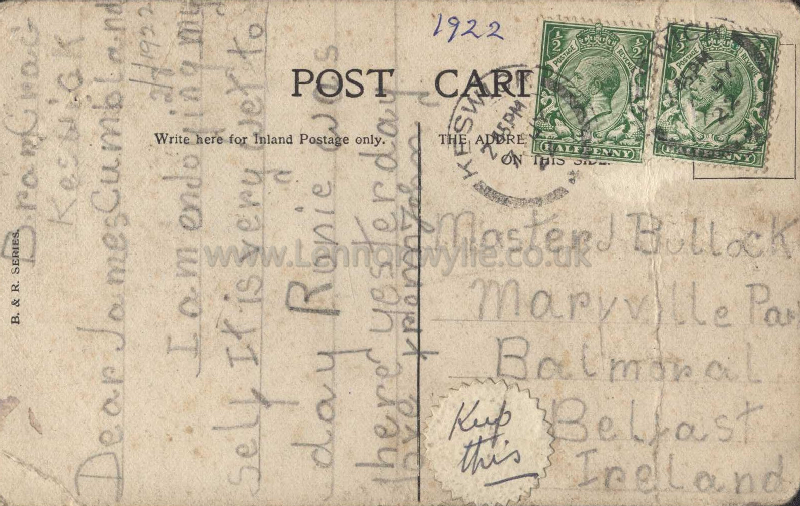 1922
POST CARD
Write here for Inland Postage only.
THE ADDRE
ON THIS SIDE.
KESWI
2 45 PM
HALFPENNY
HALFPENNY
B. & R. SERIES.
Keswick
Cumbland
2/8/1922
Dear James
I am endoying my
self It is very wet to
day Ronie was
there yesterday
love from John
Master J Bullock
Maryville Par
Balmoral
Belfast
Ireland
Keep
this
www.Lennonwylie.co.uk